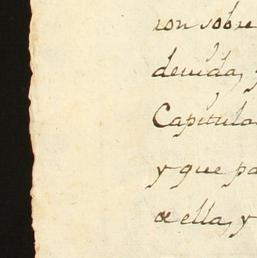 ion sobre
devida, y
Capitula
y que pa
de ella, y